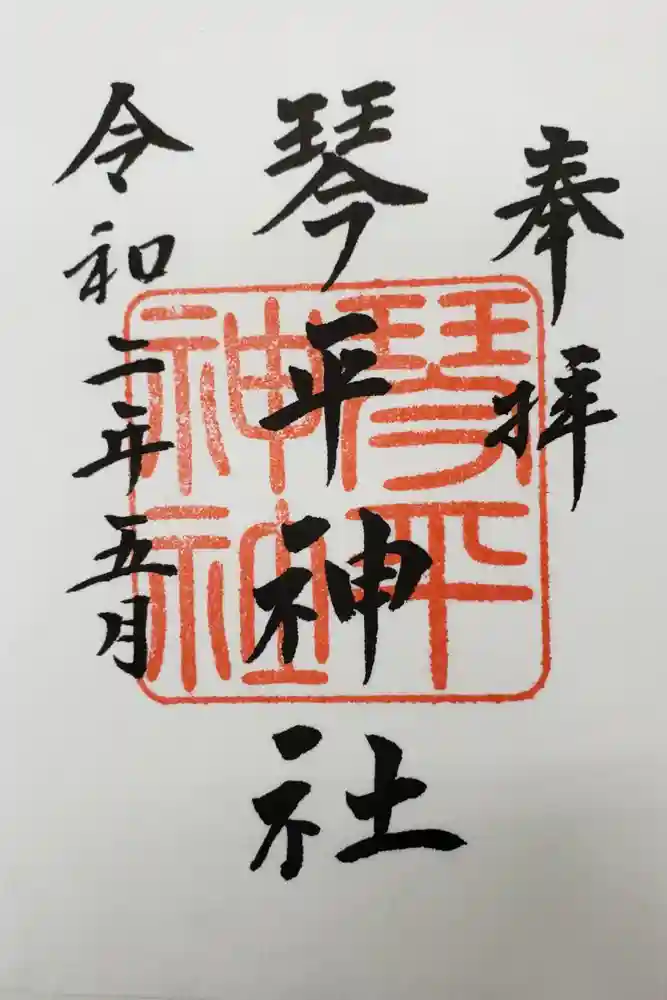 奉拝
琴平神社
琴平
神社
令和二年五月